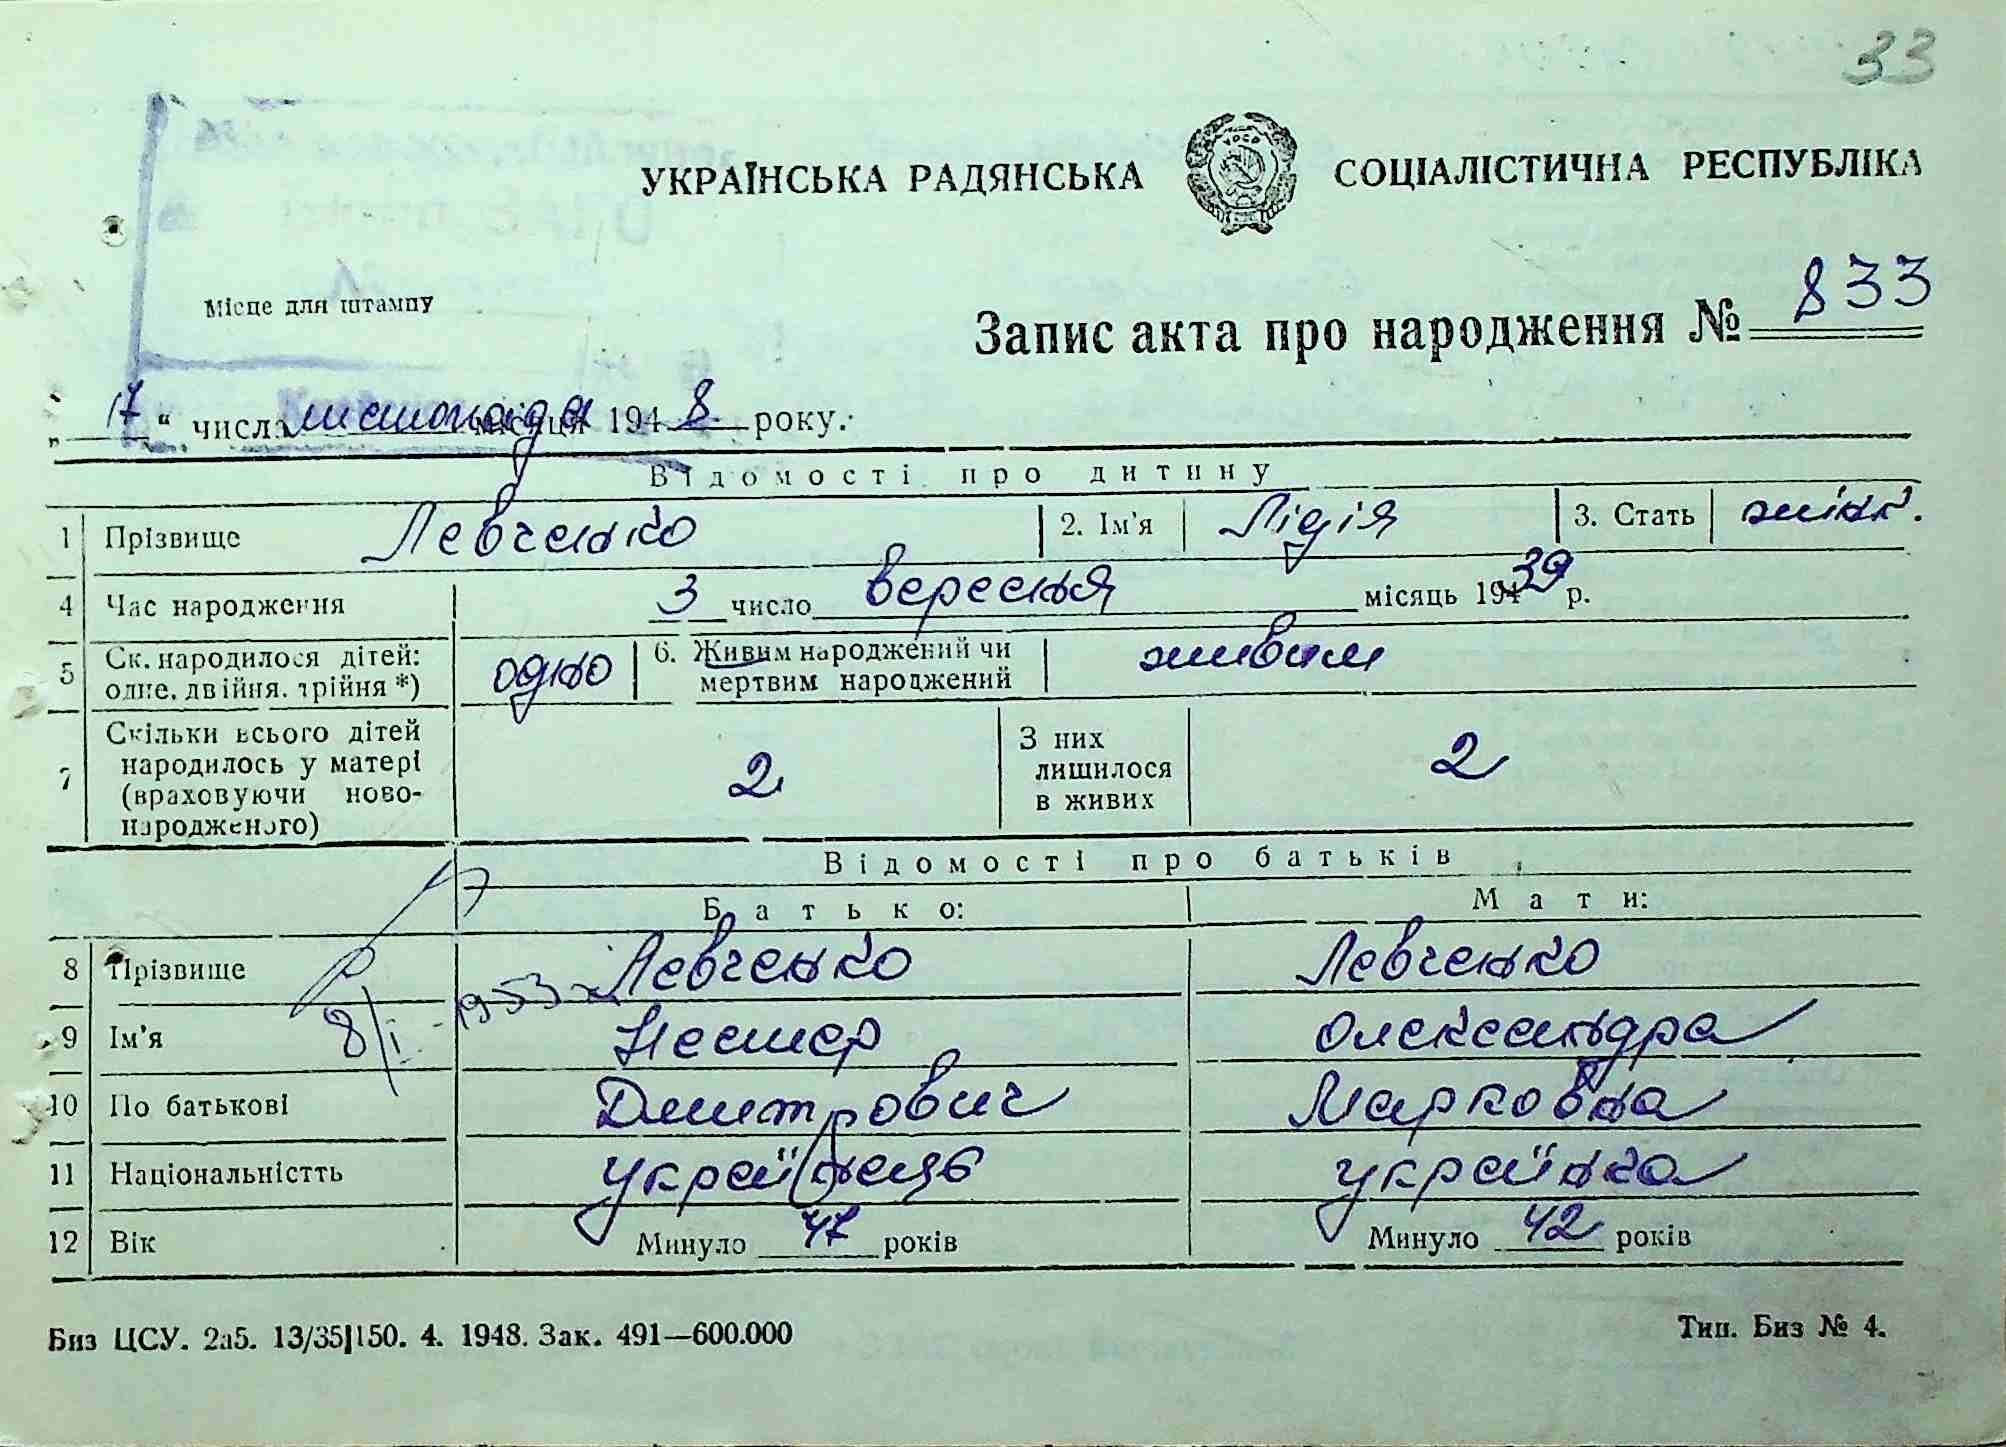 33
УКРАЇНСЬКА РАДЯНСЬКА СОЦІАЛІСТИЧНА РЕСПУБЛІКА
Місце для штампу
Запис акта про народження № 833
„ 17 “ числа листопада місяця 194 8 року.
Відомості про дитину
1 Прізвище Левченко 2. Ім'я Лідія 3. Стать жінк.
4 Час народження 3 число вересня місяць 194 39 р.
5 Ск. народилося дітей: одне, двійня, трійня *) одно 6. Живим народжений чи мертвим народжений живим
7 Скільки всього дітей народилось у матері (враховуючи новонародженого) 2 З них лишилося в живих 2
Відомості про батьків
Батько: Мати:
8 Прізвище Левченко Левченко
9 Ім'я Нестер Олександра
8/I - 1953
10 По батькові Дмитрович Марковна
11 Національністть українець українка
12 Вік Минуло 47 років Минуло 42 років
Биз ЦСУ. 2а5. 13/35|150. 4. 1948. Зак. 491—600.000 Тип. Биз № 4.